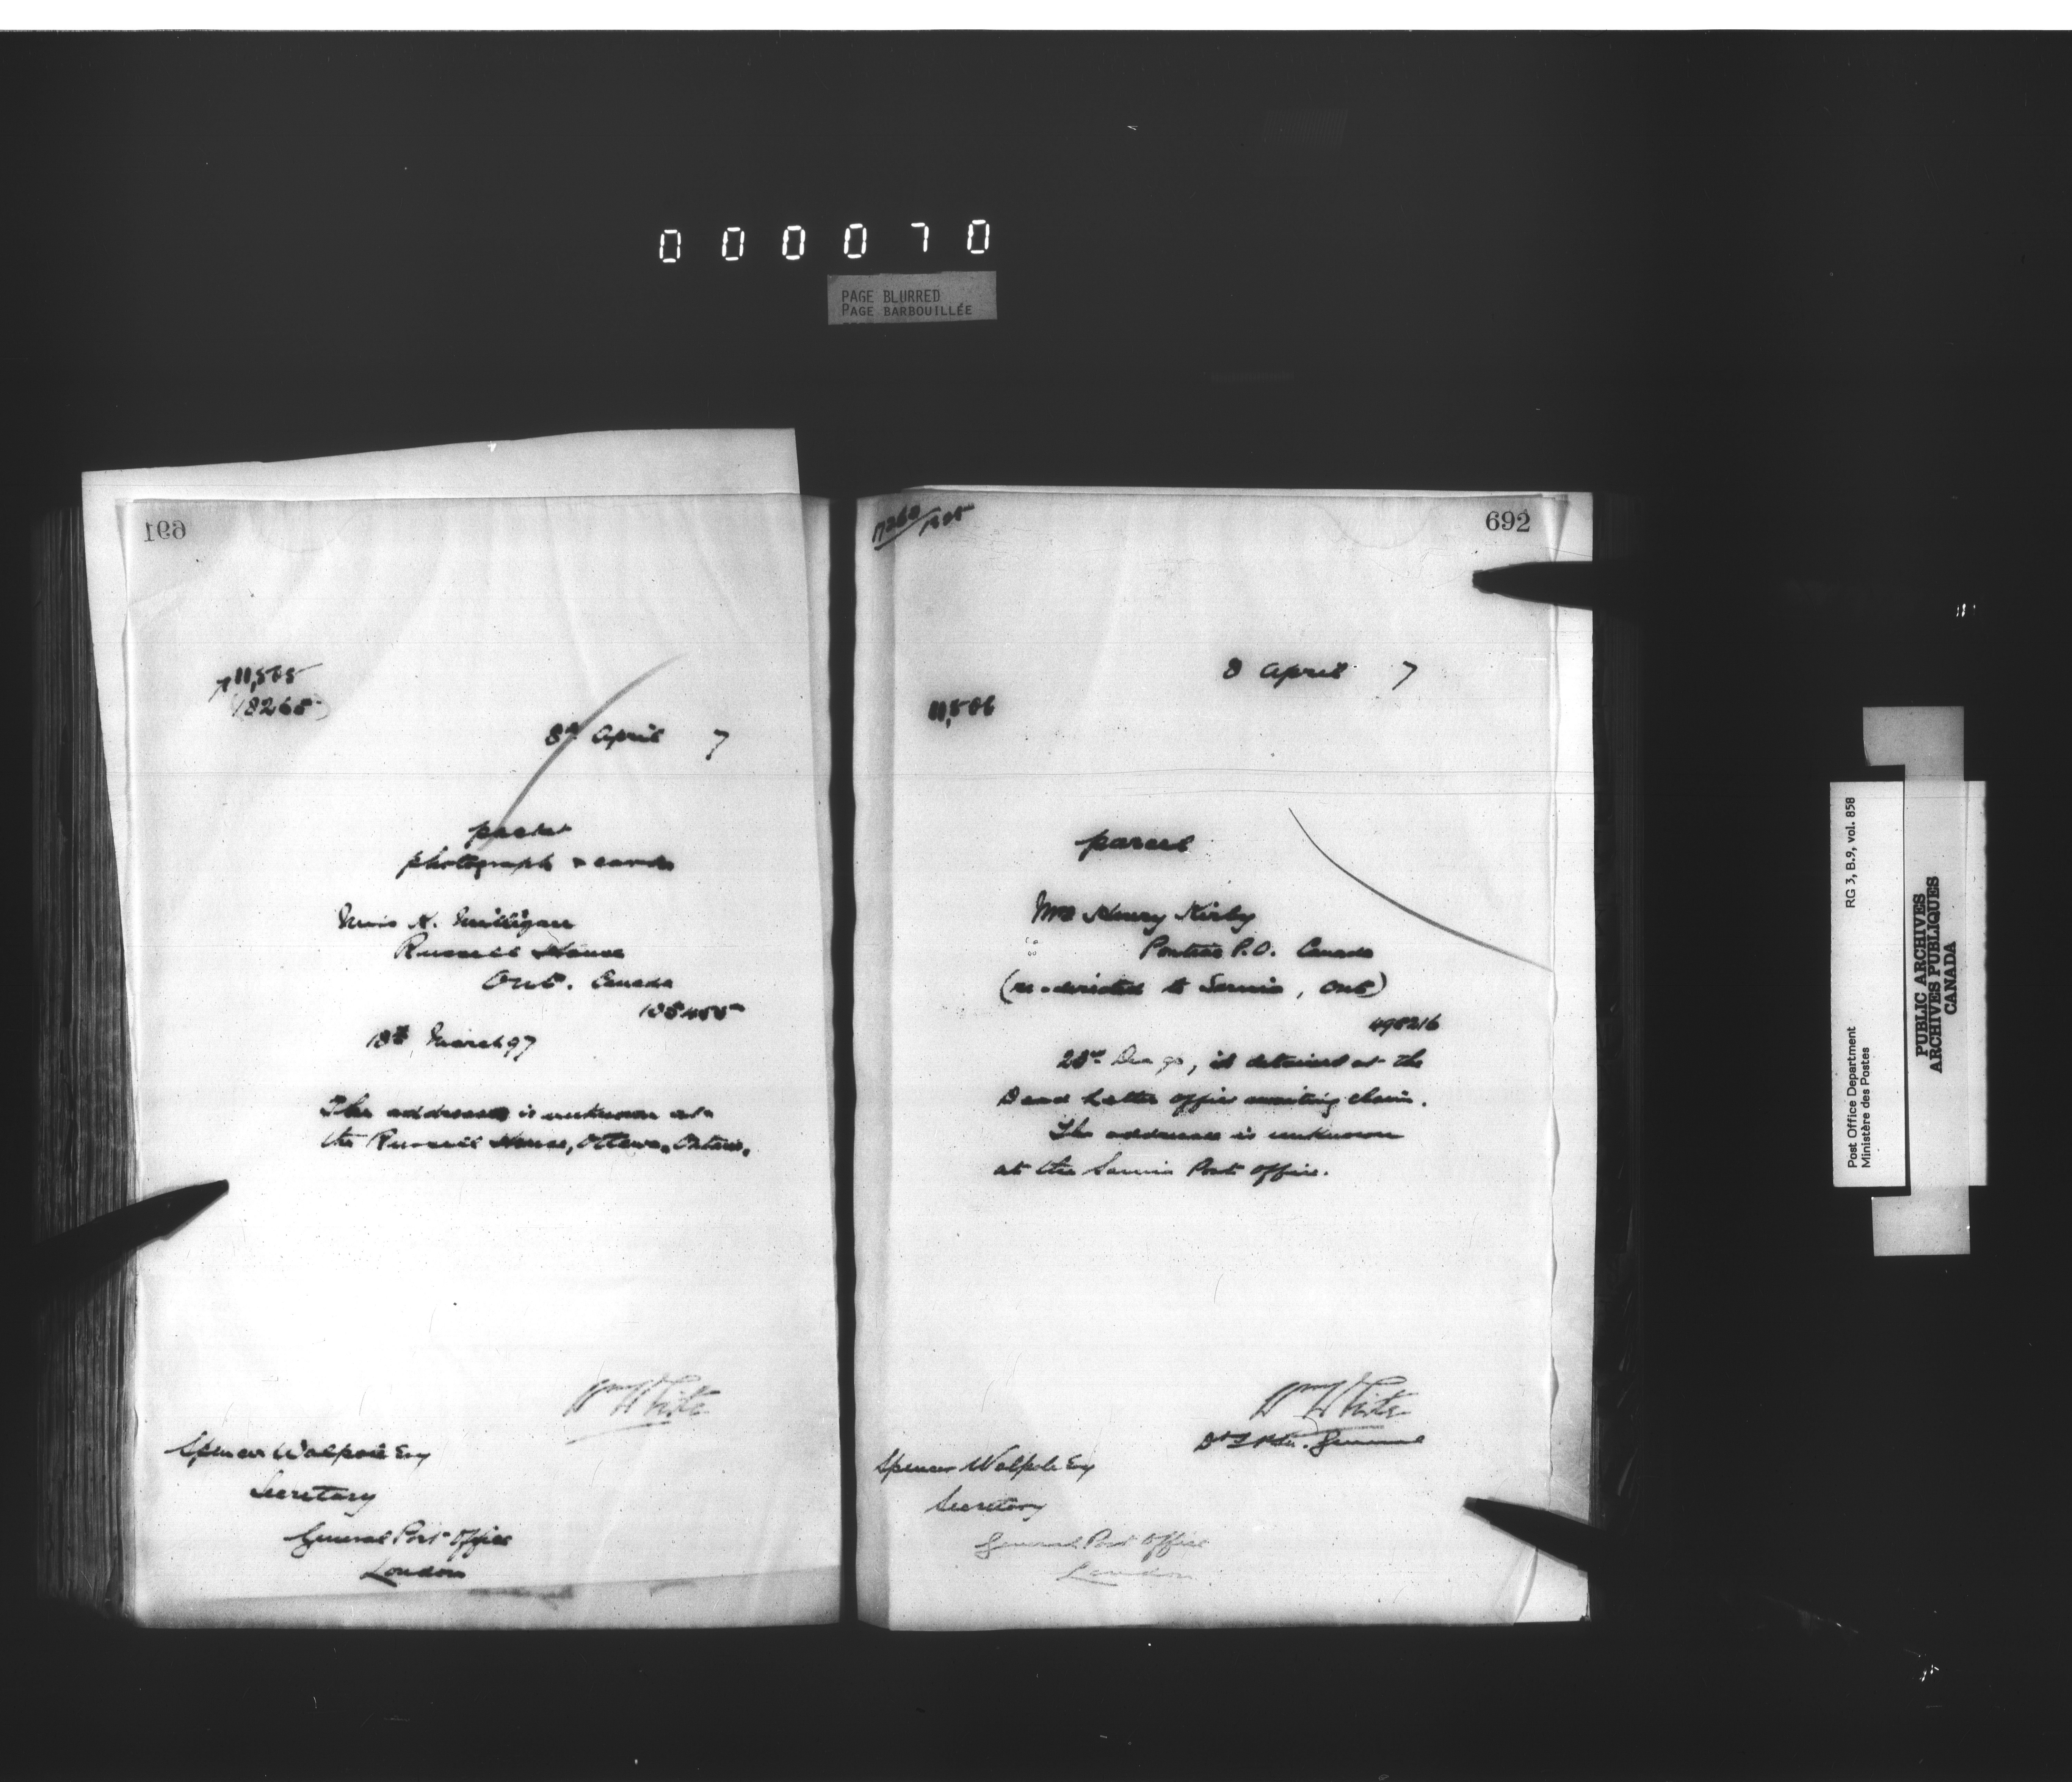 0 0 0 0 7 0
PAGE BLURRED
PAGE BARBOUILLÉE
691
11,565
18265
8th April 7
packet
photograph & cards
Miss A. Milligan
Russell House
Ont. Canada
18th March 97
The addressee is unknown at
the Russell House, Ottawa, Ontario.
Wm White
Spencer Walpole Esq
Secretary
General Post Office
London
692
8 April 7
11,566
parcel
Mrs Henry Kirby
Pontiac P.O. Canada
(re-directed to Sarnia, Ont)
498216
is detained at the
Dead Letter Office awaiting claim.
The addressee is unknown
at the Sarnia Post Office.
Wm White
General
Spencer Walpole Esq
Secretary
General Post Office
London
Post Office Department RG 3, B.9, vol. 858
Ministère des Postes
PUBLIC ARCHIVES
ARCHIVES PUBLIQUES
CANADA